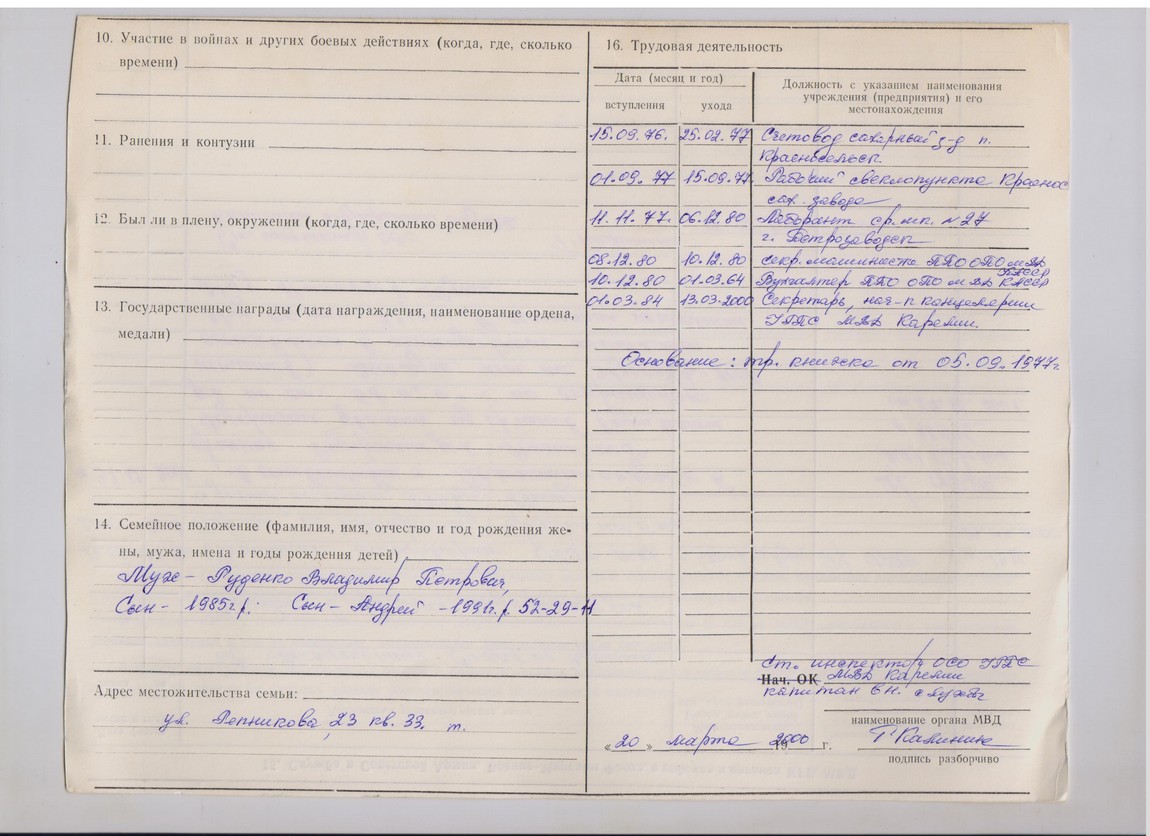 10. Участие в войнах и других боевых действиях (когда, где, сколько
времени)
11. Ранения и контузии
12. Был ли в плену, окружении (когда, где, сколько времени)
13. Государственные награды (дата награждения, наименование ордена,
медали)
14. Семейное положение (фамилия, имя, отчество и год рождения же-
ны, мужа, имена и годы рождения детей)
Муж – Руденко Владимир Петрович,
Сын – 1985г.р. Сын – Андрей – 1991г.р. 52-29-11
Адрес местожительства семьи:
ул. Репникова, 23 кв. 33. т.
16. Трудовая деятельность
Дата (месяц и год)
вступления
ухода
Должность с указанием наименования
учреждения (предприятия) и его
местонахождения
15.09.76. 25.02.77 Счетовод сахарный з-д п.
Красносельск.
01.09.77 15.09.77. Рабочий свеклопункта Краснос
сах. завода
11.11.77. 06.12.80 Лаборант ср. шк. №27
г. Петрозаводск
08.12.80 10.12.80 секр. машинистка ППО ОПО МВД
КАССР
10.12.80 01.03.64 Бухгалтер ППО ОПО МВД КАССР
01.03.84 13.03.2000 Секретарь, нач-к канцелярии
УГПС МВД Карелии.
Основание: тр. книжка от 05.09.1977г
ст. инспектор ОСО УГПС
Нач. ОК МВД Карелии
капитан вн. службы
наименование органа МВД
«20» марта 2000 г.
подпись разборчиво